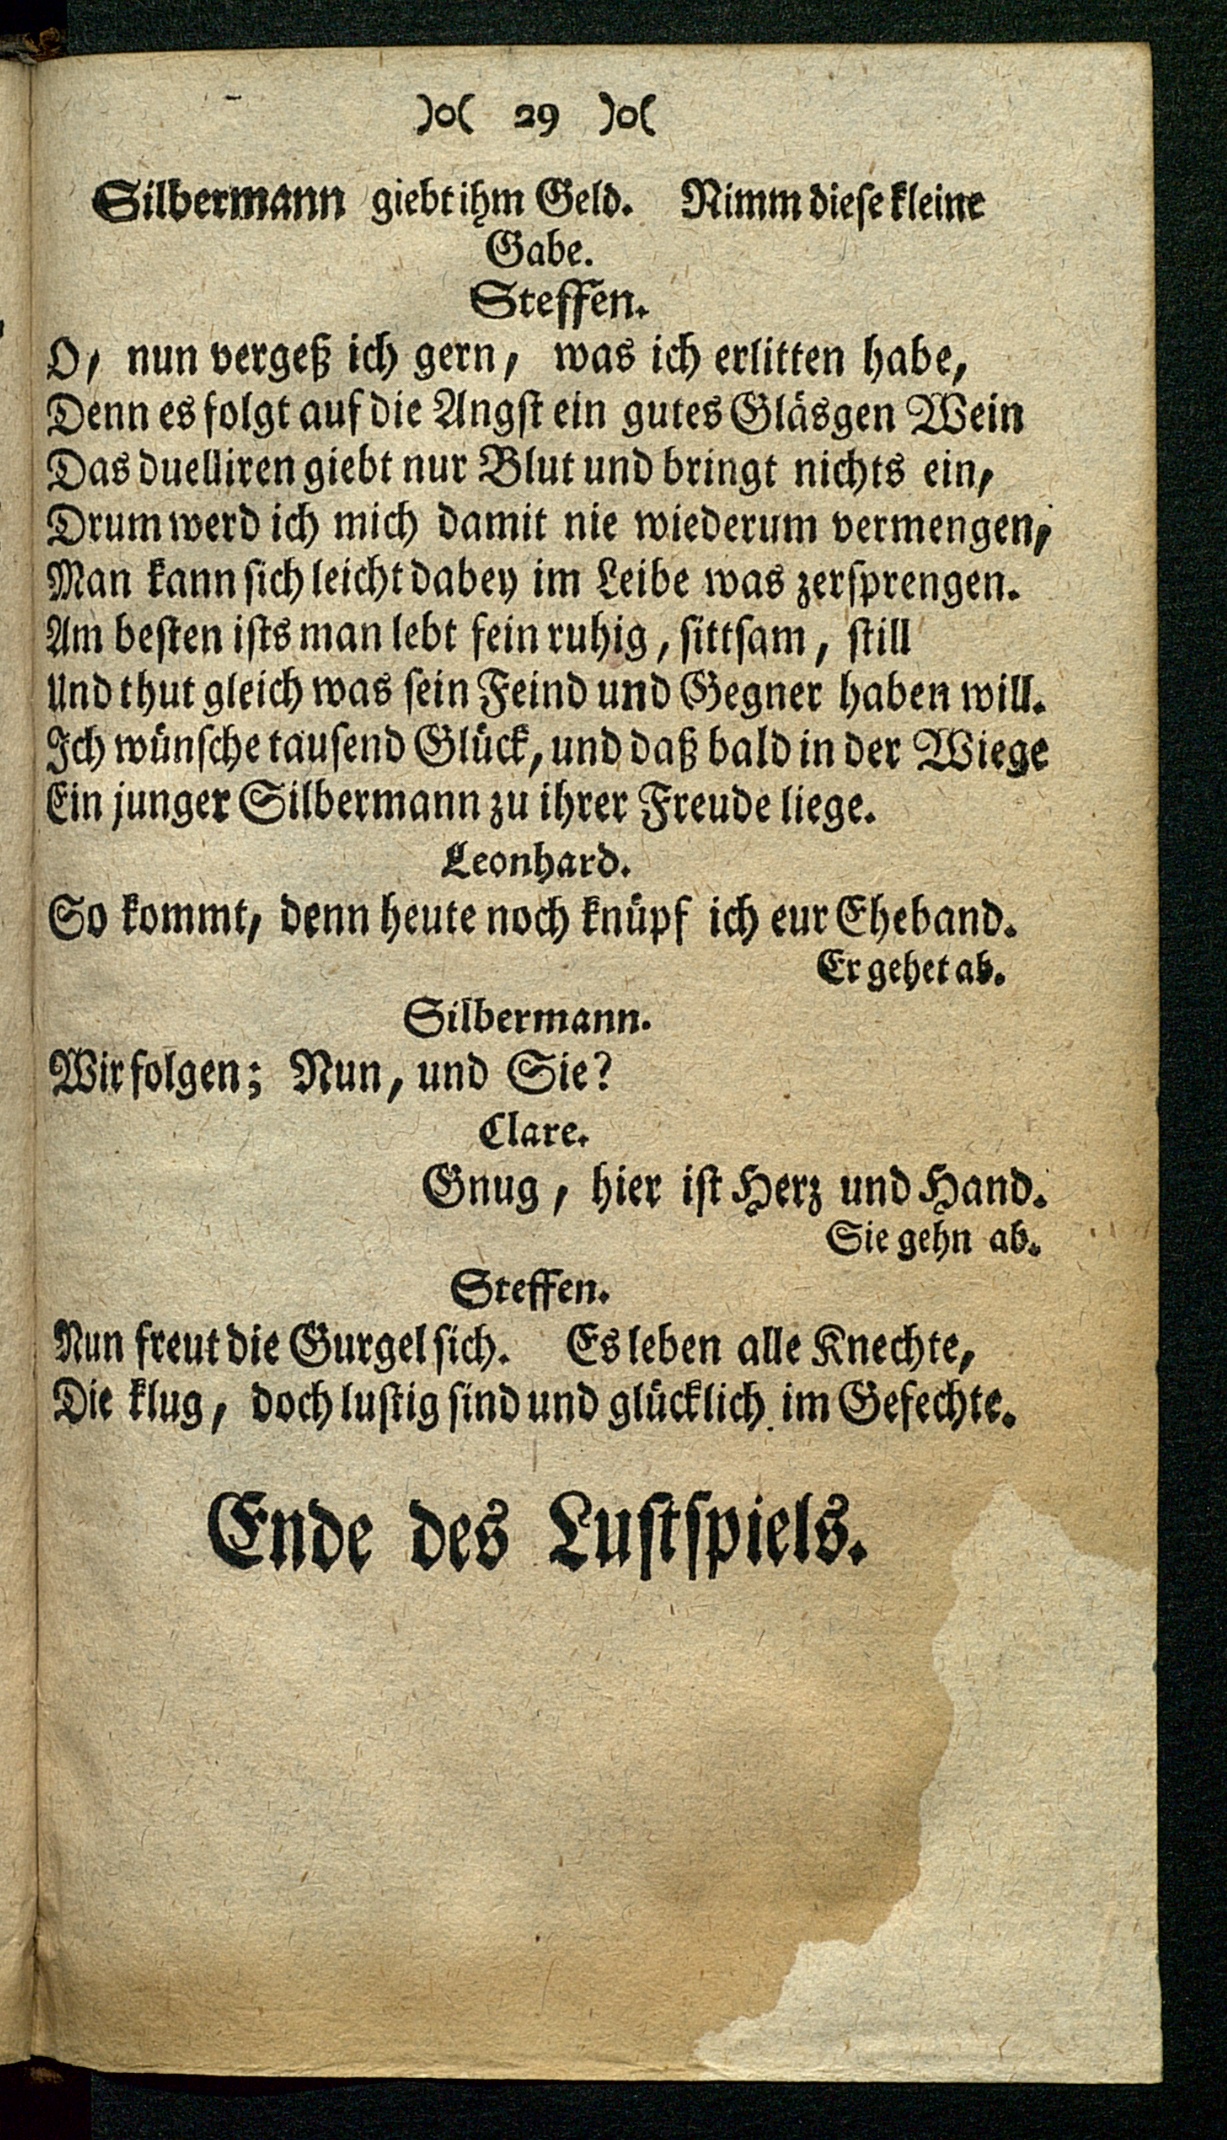 )o( 29 )o(
Silbermann giebt ihm Geld. Nimm diese kleine
Gabe.
Steffen.
O, nun vergeß ich gern, was ich erlitten habe,
Denn es folgt auf die Angst ein gutes Gläsgen Wein
Das duelliren giebt nur Blut und bringt nichts ein,
Drum werd ich mich damit nie wiederum vermengen,
Man kann sich leicht dabey im Leibe was zersprengen.
Am besten ists man lebt fein ruhig, sittsam, still
Und thut gleich was sein Feind und Gegner haben will.
Ich wünsche tausend Glück, und daß bald in der Wiege
Ein junger Silbermann zu ihrer Freude liege.
Leonhard.
So kommt, denn heute noch knüpf ich eur Eheband.
Er gehet ab.
Silbermann.
Wir folgen; Nun, und Sie?
Clare.
Gnug, hier ist Herz und Hand.
Sie gehn ab.
Steffen.
Nun freut die Gurgel sich. Es leben alle Knechte,
Die klug, doch lustig sind und glücklich im Gefechte.
Ende des Lustspiels.